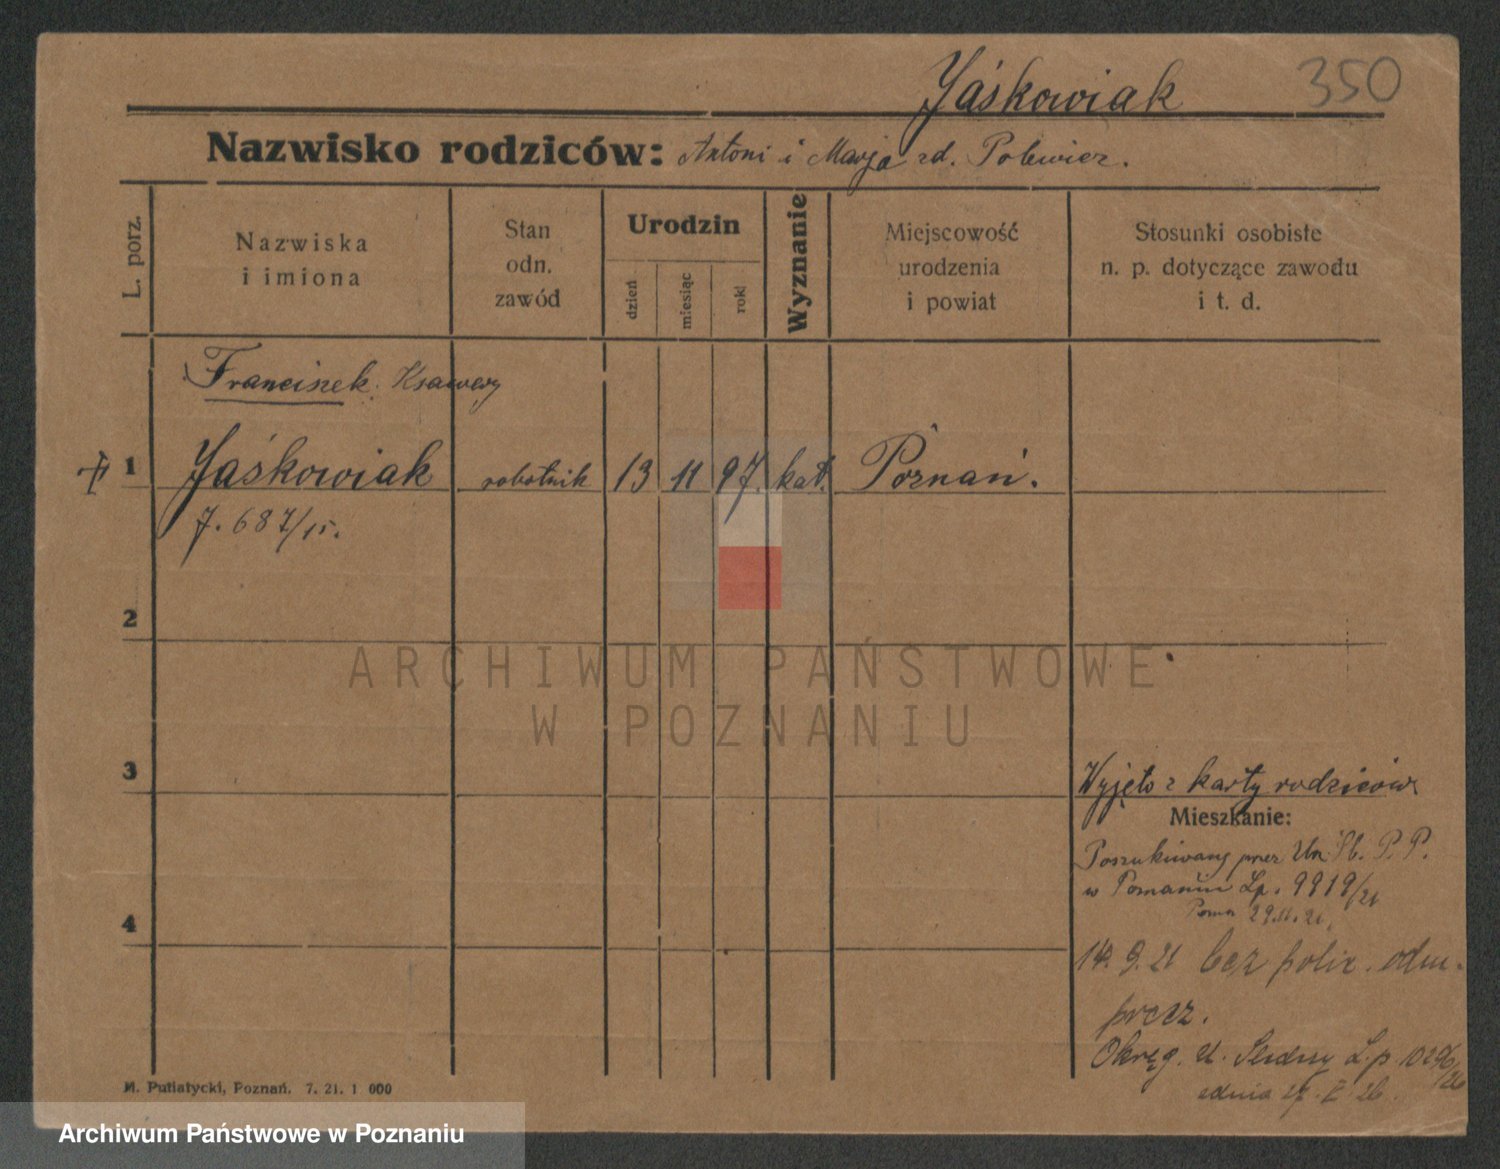 Jaśkowiak 350
Nazwisko rodziców: Antoni i Marja rd. Polewicz.
L. porz.
Nazwiska
i imiona
Stan
odn.
zawód
Urodzin
dzień
miesiąc
rok
Wyznanie
Miejscowość
urodzenia
i powiat
Stosunki osobiste
n. p. dotyczące zawodu
i t. d.
Franciszek Ksawery
1 Jaśkowiak robotnik 13 11 97. kat. Poznań.
J. 687/15.
2
ARCHIWUM PAŃSTWOWE
W POZNANIU
3
Wyjęto z karty rodziców
Mieszkanie:
Poszukiwany przez Urz. Śl. P. P.
w Poznaniu Lp. 9919/21
29.11.21.
4
14. 9. 21 bez polic. odm.
przez.
Okręg. U. Śledczy L. p. 10296/26
M. Putiatycki, Poznań. 7. 21. 1 000
Archiwum Państwowe w Poznaniu